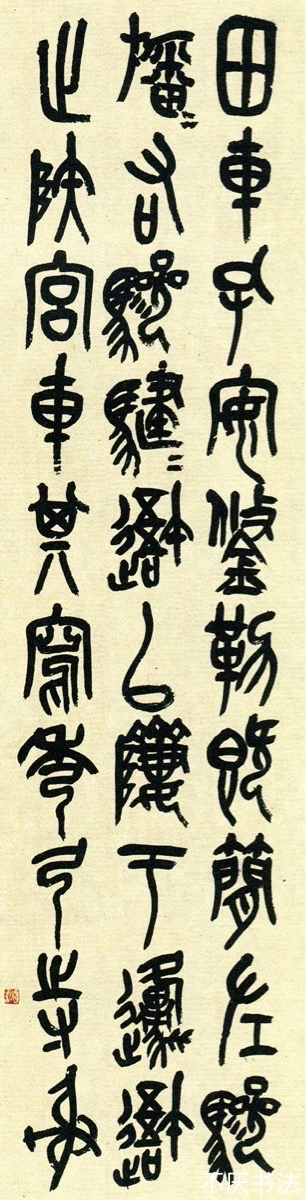 田車孔安鋚勒既簡左驂
旛〻右驂騝〻吾以隮于邍吾
止陝宮車其寫秀弓寺射
书法